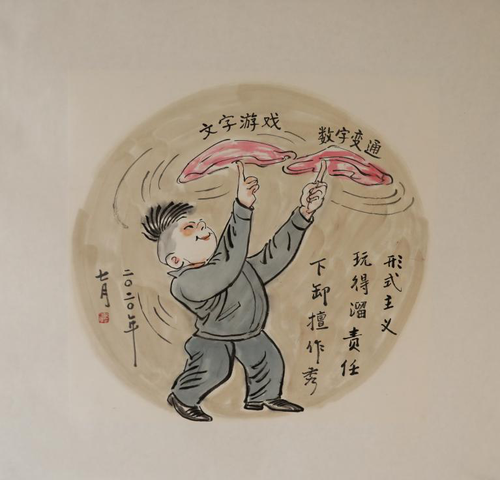 文字游戏
数字变通
形式主义
玩得溜责任
下卸擅作秀
二〇二〇年
七月